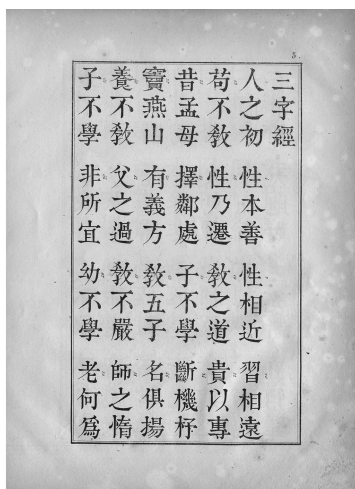 5.
三字經
人之初 性本善 性相近 習相遠
苟不敎 性乃遷 敎之道 貴以專
昔孟母 擇鄰處 子不學 斷機杼
竇燕山 有義方 敎五子 名俱揚
養不敎 父之過 敎不嚴 師之惰
子不學 非所宜 幼不學 老何爲